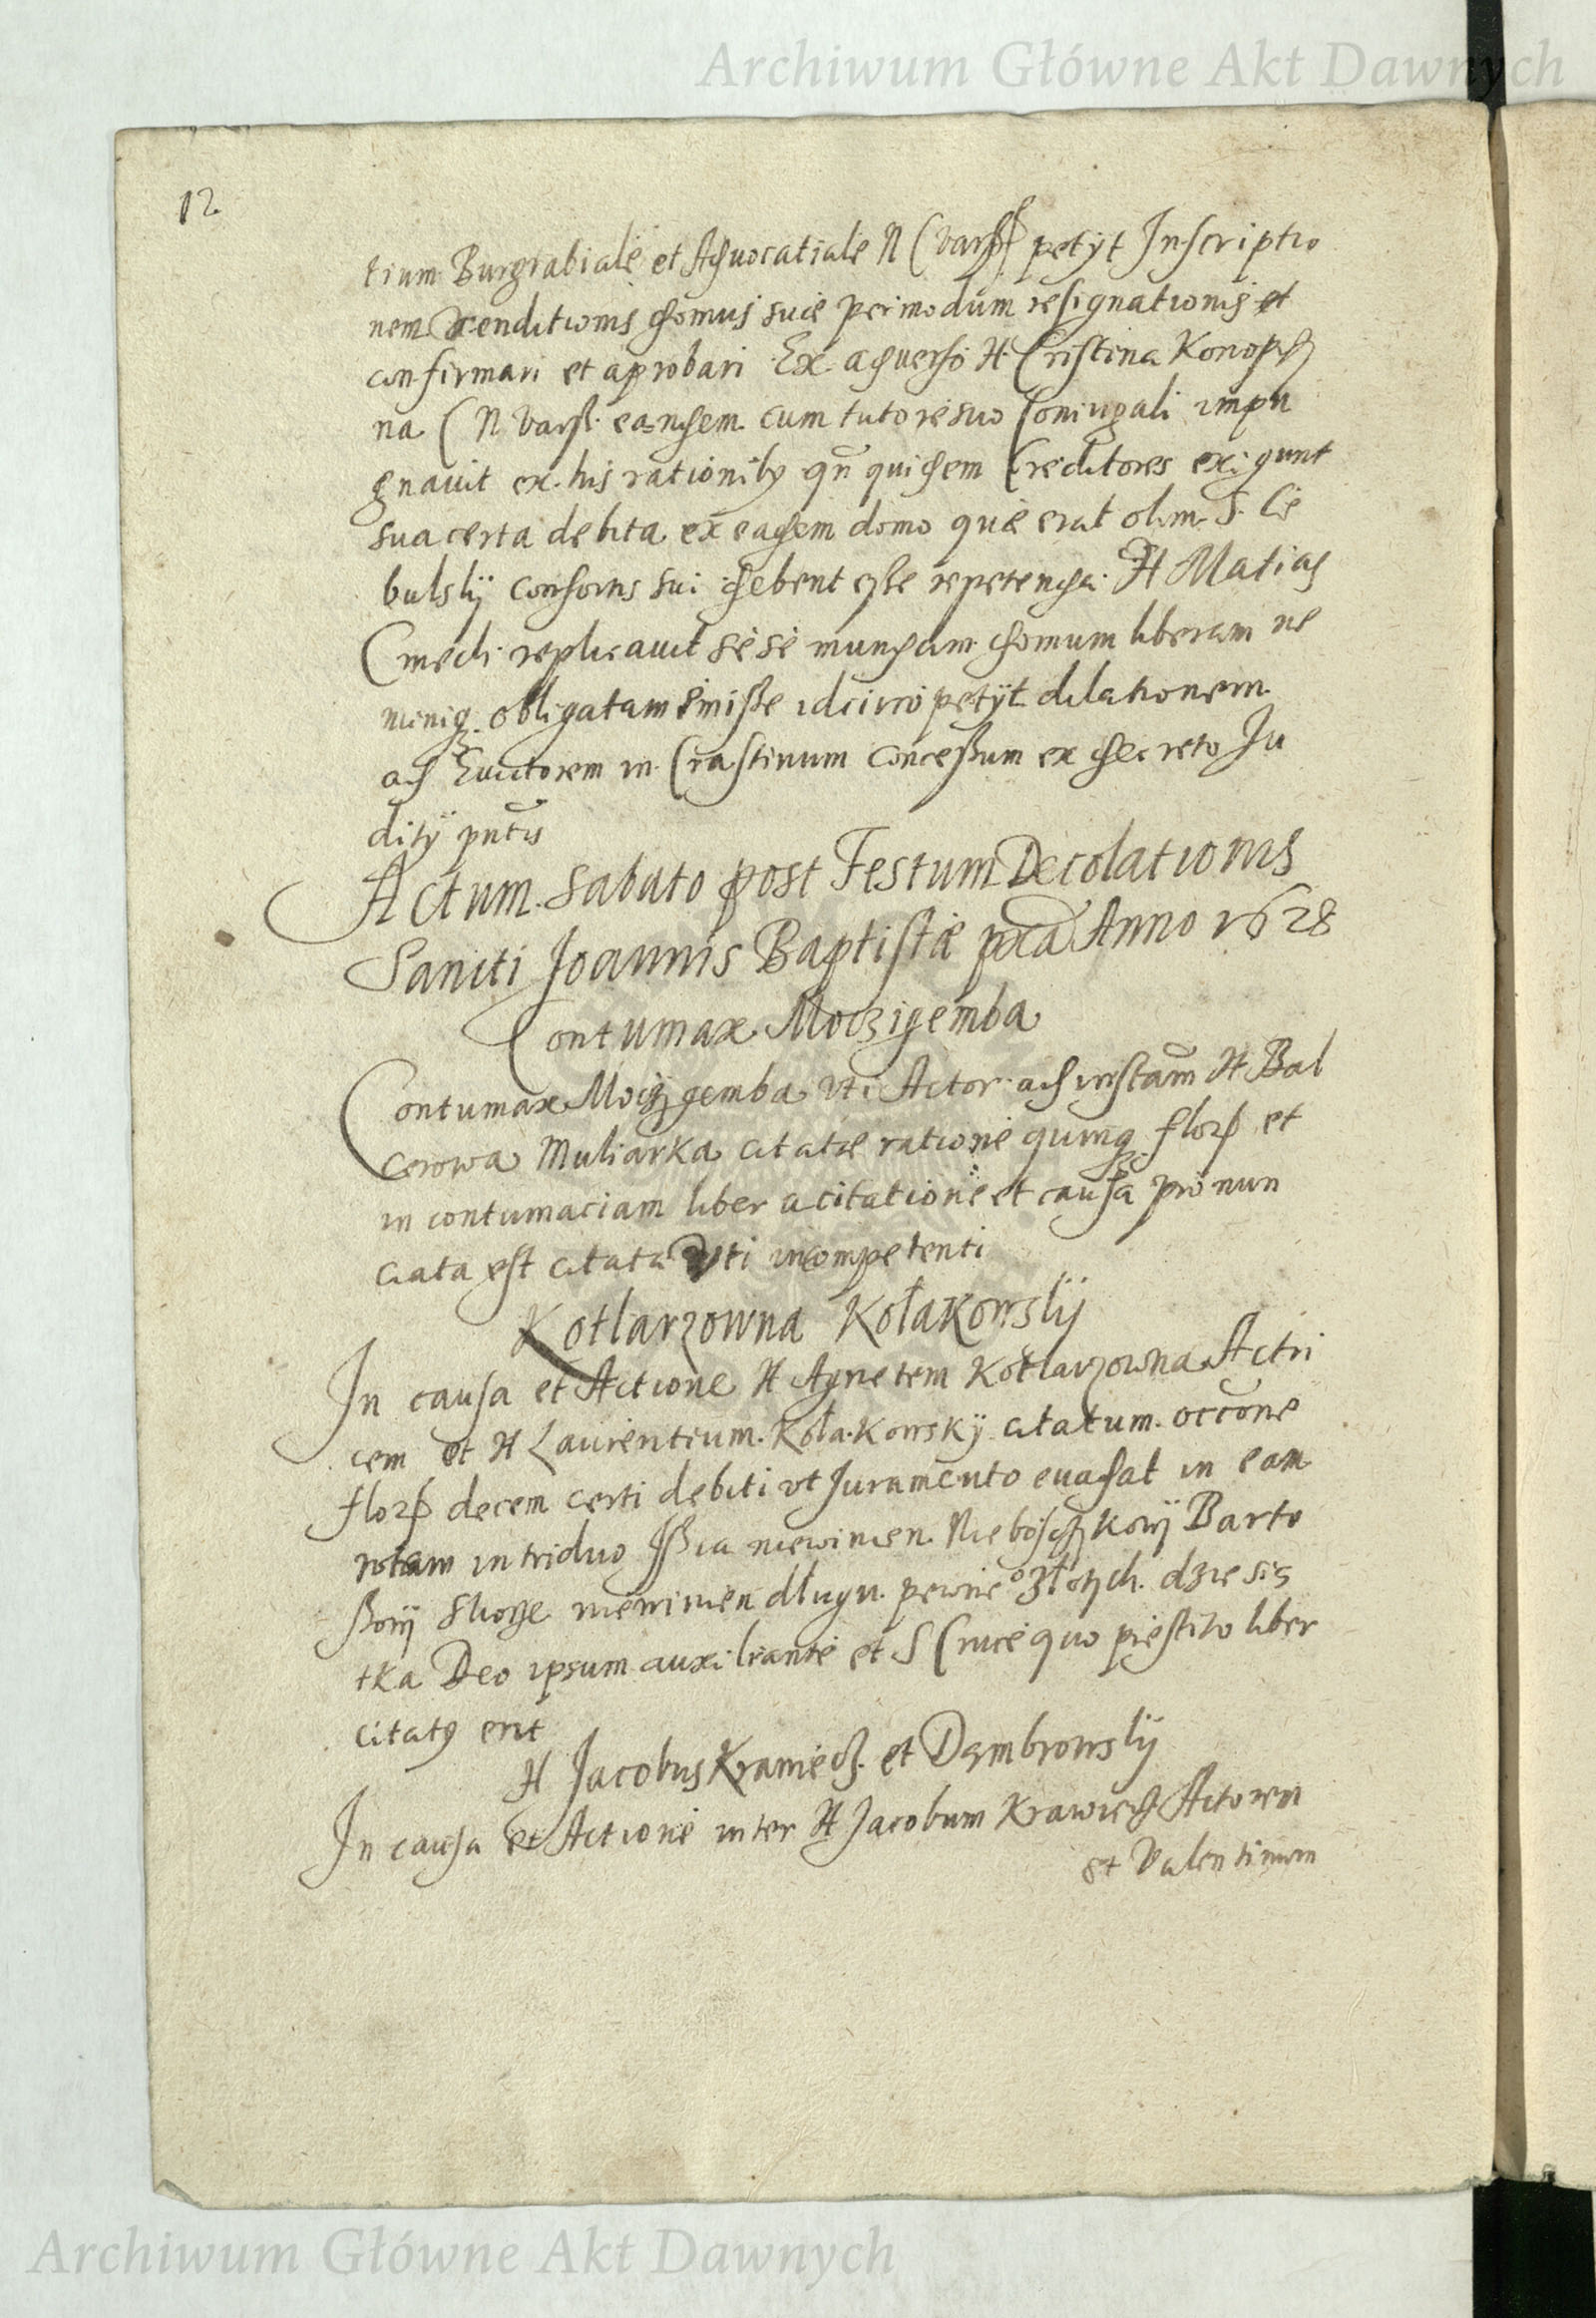 Archiwum Główne Akt Dawnych
12
tium Burgrabiale et Advocatiale N Cvarss petyt Inscriptio
nem venditionis domus suæ per modum resignationis et
confirmari et aprobari Ex adverso H Cristina Konopcz
na C N Varss eandem cum tutore suo Coniugali impu
gnauit ex his rationiby qn quidem Creditores exigunt
sua certa debita ex eadem domo quæ erat olim S. Ce
bulsky consortis sui debent esse repetenda H Matias
Cmedi replicauit sese mundam domum liberam ne
miniq obligatam emisse idcirco petyt dilationem
ad Euictorem in Crastinum concessum ex decreto Ju
dity pntis
Actum Sabato post Festum Decolationis
Sancti Joannis Baptistæ pxa Anno 1628
Contumax Moczigemba
Contumax Moczygemba uti Actor ad instam H Bal
cerowa Muliarka citatæ ratione quinq flor et
in contumaciam liber a citatione et causa pronun
ciata est citata uti incompetenti
Kotlarzowna Kołakowsky
In causa et Actione H Agnetem Kotlarzowna Actri
cem et H Laurentium Kołakowsky citatum occone
flor decem certi debiti ut Juramento euadat in eam
rotam in triduo Iss ia niewinien Nieboszczykowy Barto
ssowy niewinien długu pewne° złotych dziesią
tka Deo ipsum auxiliante et S Cruce quo præstito liber
citaty erit
H Jacobus Krawiecz et Dąmbrowsky
In causa et Actione inter H Jacobum Krawiecz Actorem
et Valentinum
Archiwum Główne Akt Dawnych